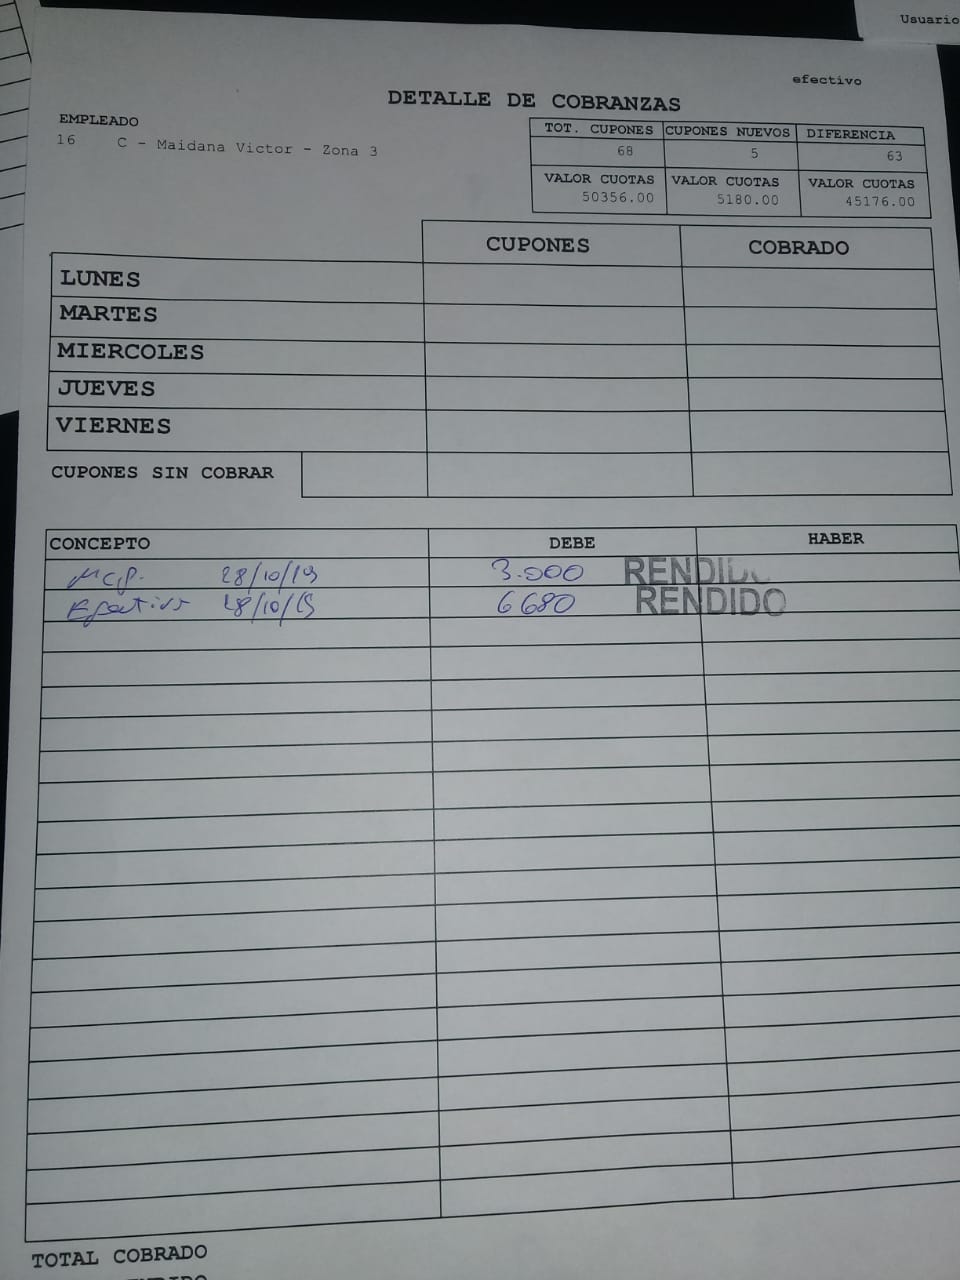 Usuario
efectivo
DETALLE DE COBRANZAS
EMPLEADO
16 C - Maidana Victor - Zona 3
TOT. CUPONES CUPONES NUEVOS DIFERENCIA
68 5 63
VALOR CUOTAS VALOR CUOTAS VALOR CUOTAS
50356.00 5180.00 45176.00
CUPONES COBRADO
LUNES
MARTES
MIERCOLES
JUEVES
VIERNES
CUPONES SIN COBRAR
CONCEPTO DEBE HABER
28/10/19 3.000 RENDIDO
Efectivo 28/10/19 6680 RENDIDO
TOTAL COBRADO